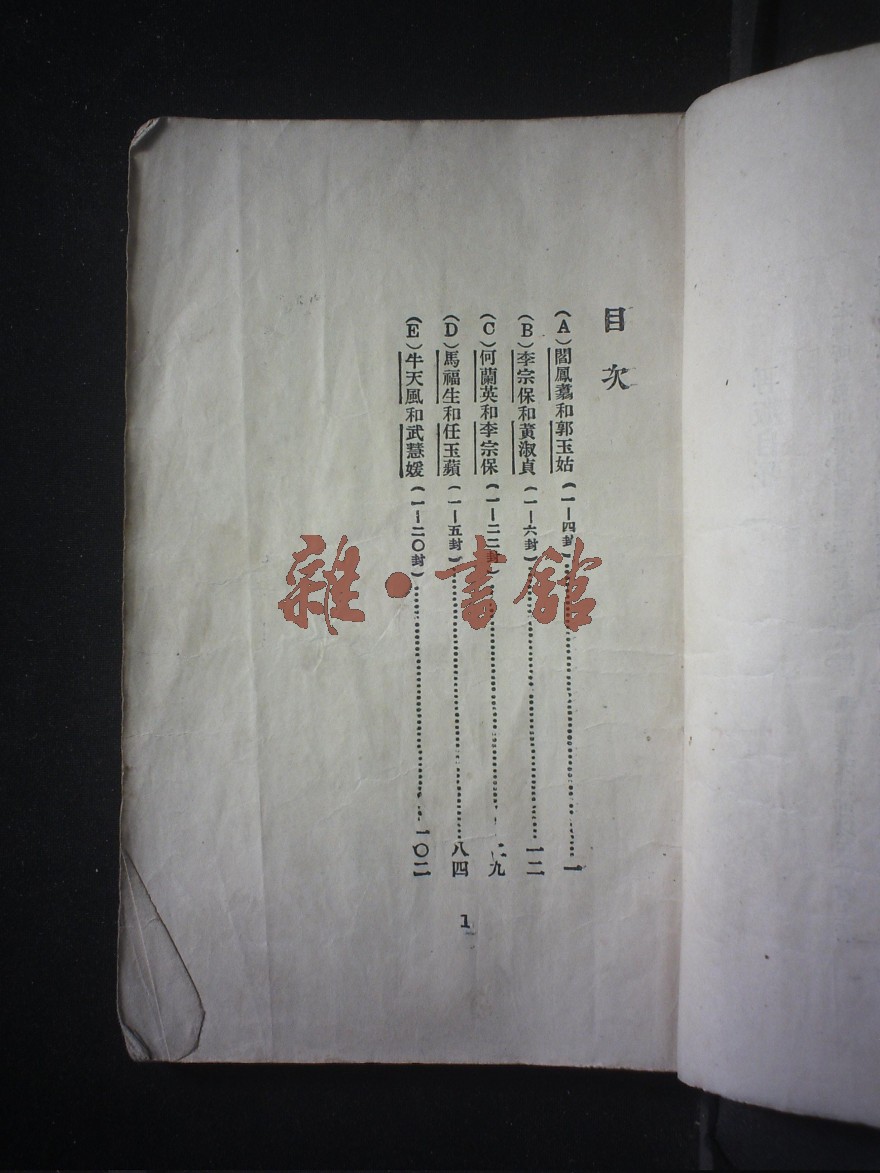 目次
(A)閻鳳翥和郭玉姑(一—四封)一
(B)李宗保和黃淑貞(一—六封)一二
(C)何蘭英和李宗保(一—二二封)二九
(D)馬福生和任玉蘋(一—五封)八四
(E)牛天風和武慧媛(一—二〇封)一〇二
1
雜·書館